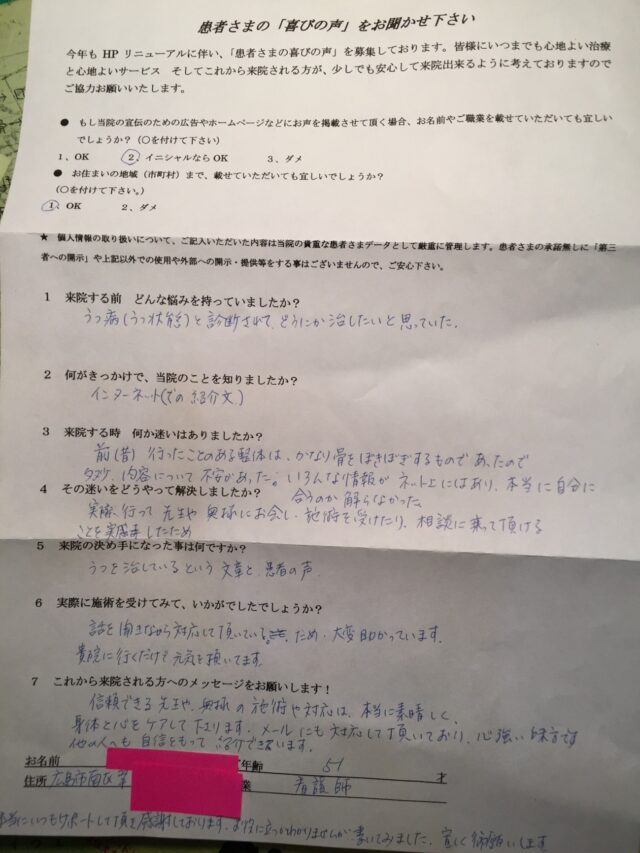 患者さまの「喜びの声」をお聞かせ下さい
今年も HP リニューアルに伴い、「患者さまの喜びの声」を募集しております。皆様にいつまでも心地よい治療
と心地よいサービス そしてこれから来院される方が、少しでも安心して来院出来るように考えておりますので
ご協力お願いいたします。
● もし当院の宣伝のための広告やホームページなどにお声を掲載させて頂く場合、お名前やご職業を載せていただいても宜しい
でしょうか?(○を付けて下さい)
1、OK 2、イニシャルなら OK 3、ダメ
● お住まいの地域(市町村)まで、載せていただいても宜しいでしょうか?
(○を付けて下さい。)
1 OK 2、ダメ
★ 個人情報の取り扱いについて、ご記入いただいた内容は当院の貴重な患者さまデータとして厳重に管理します。患者さまの承諾無しに「第三
者への開示」や上記以外での使用や外部への開示・提供等をする事はございませんので、ご安心下さい。
1 来院する前 どんな悩みを持っていましたか?
うつ病(うつ状態)と診断されて、どうにか治したいと思っていた。
2 何がきっかけで、当院のことを知りましたか?
インターネット(での紹介文)
3 来院する時 何か迷いはありましたか?
前(昔)行ったことのある整体は、かなり骨をぼきぼきするものであったので
内容について不安があった。いろんな情報がネット上にはあり、本当に自分に
合うのか解らなかった
4 その迷いをどうやって解決しましたか?
実際、行って先生や奥様にお会いし、施術を受けたり、相談に乗って頂ける
ことを実感したため
5 来院の決め手になった事は何ですか?
うつを治しているという文章と、患者の声
6 実際に施術を受けてみて、いかがでしたでしょうか?
話を聞きながら対応して頂いている ため、大変助かっています。
貴院に行くだけで元気を頂いてます。
7 これから来院される方へのメッセージをお願いします!
信頼できる先生や、奥様の施術や対応は、本当に素晴しく、
身体と心をケアして下さります。メールにも対応して頂いており、心強い味方です
他の人へも自信をもって紹介できています。
お名前 年齢 51 才
住所 広島市南区 業 看護師
本当にいつもサポートして頂き感謝しております。お役に立つかわかりませんが書いてみました。宜しく御願いします